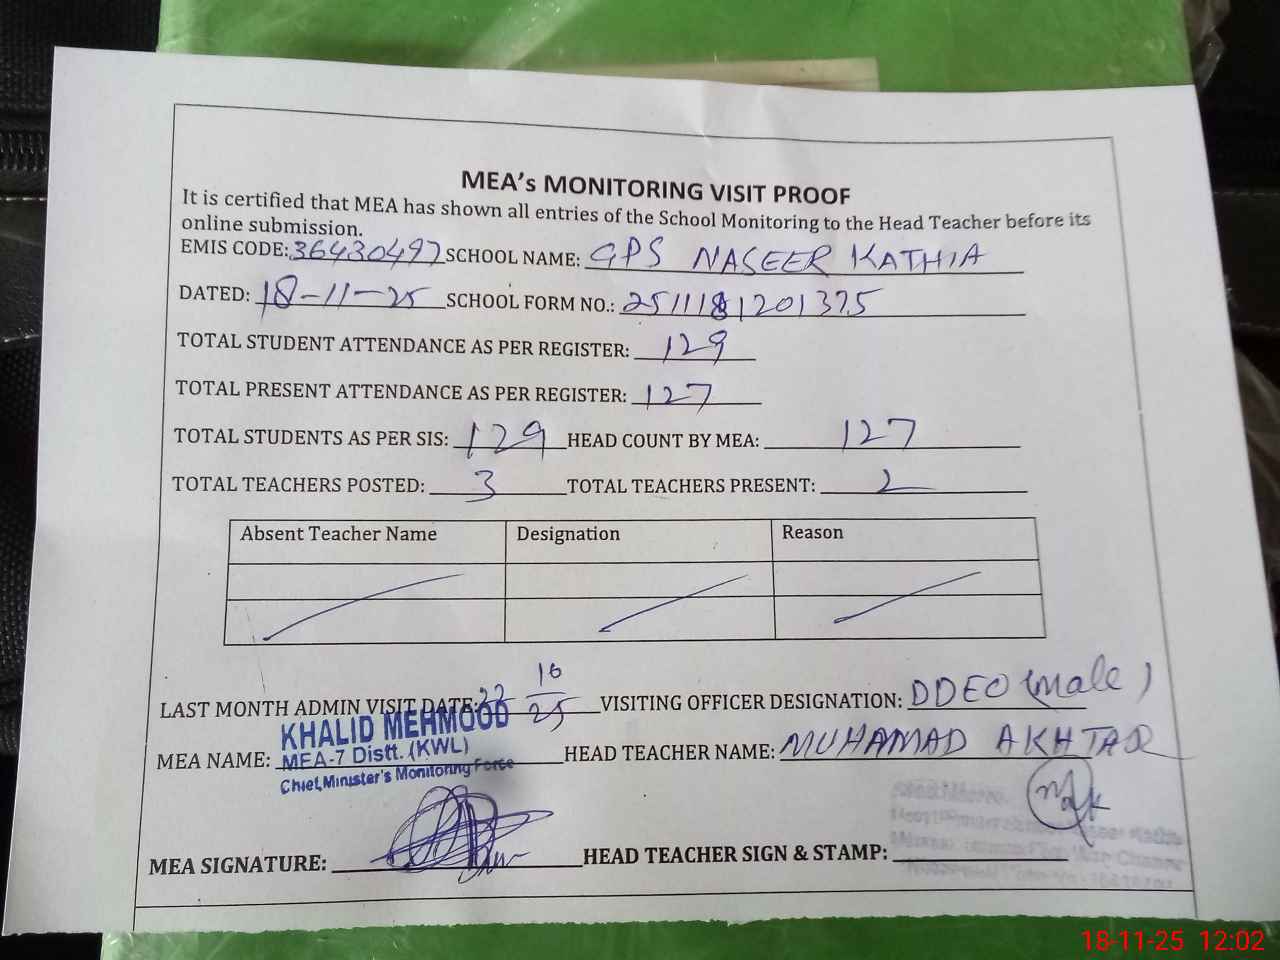 MEA's MONITORING VISIT PROOF
It is certified that MEA has shown all entries of the School Monitoring to the Head Teacher before its
online submission.
EMIS CODE: 36430497 SCHOOL NAME: GPS NASEER KATHIA
DATED: 18-11-25 SCHOOL FORM NO.: 2511181201375
TOTAL STUDENT ATTENDANCE AS PER REGISTER: 129
TOTAL PRESENT ATTENDANCE AS PER REGISTER: 127
TOTAL STUDENTS AS PER SIS: 129 HEAD COUNT BY MEA: 127
TOTAL TEACHERS POSTED: 3 TOTAL TEACHERS PRESENT: 2
Absent Teacher Name Designation Reason
LAST MONTH ADMIN VISIT DATE: 22 10 25 VISITING OFFICER DESIGNATION: DDEO (Male)
MEA NAME: KHALID MEHMOOD HEAD TEACHER NAME: MUHAMAD AKHTAR
MEA-7 Distt. (KWL)
Chief Minister's Monitoring Force
MEA SIGNATURE: HEAD TEACHER SIGN & STAMP:
18-11-25 12:02